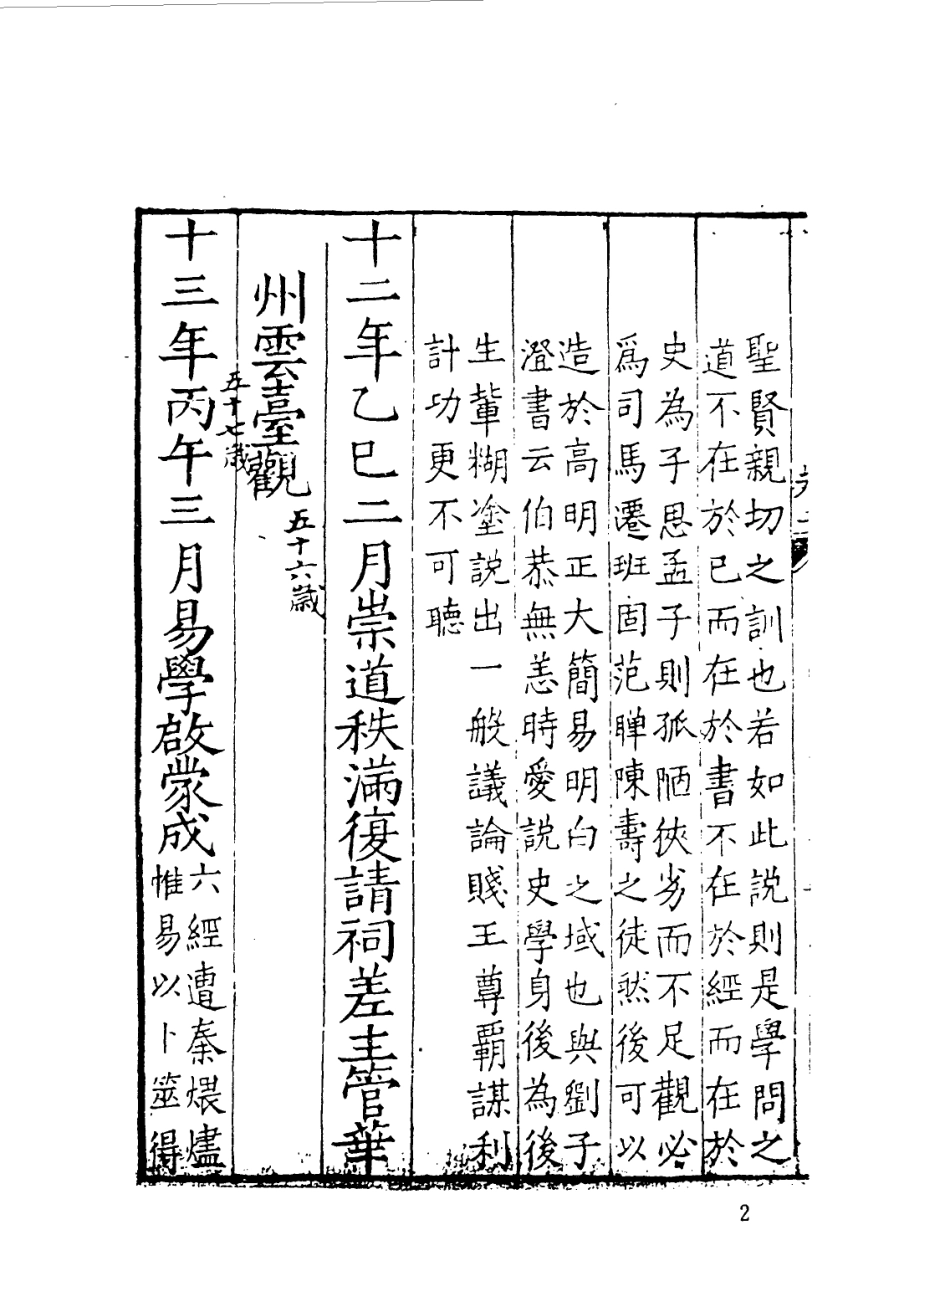 聖賢親切之訓也若如此説則是學問之
道不在於已而在於書不在於經而在於
史為子思孟子則孤陋狹劣而不足觀必
爲司馬遷班固范曄陳壽之徒然後可以
造於高明正大簡易明白之域也與劉子
澄書云伯恭無恙時愛説史學身後為後
生輩糊塗説出一般議論賤王尊覇謀利
計功更不可聽
十二年乙巳二月崇道秩滿復請祠差主管華
州雲臺觀
五十六歲
十三年丙午三月易學啟蒙成
六經遭秦煨燼
惟易以卜筮得
五十七歲
2